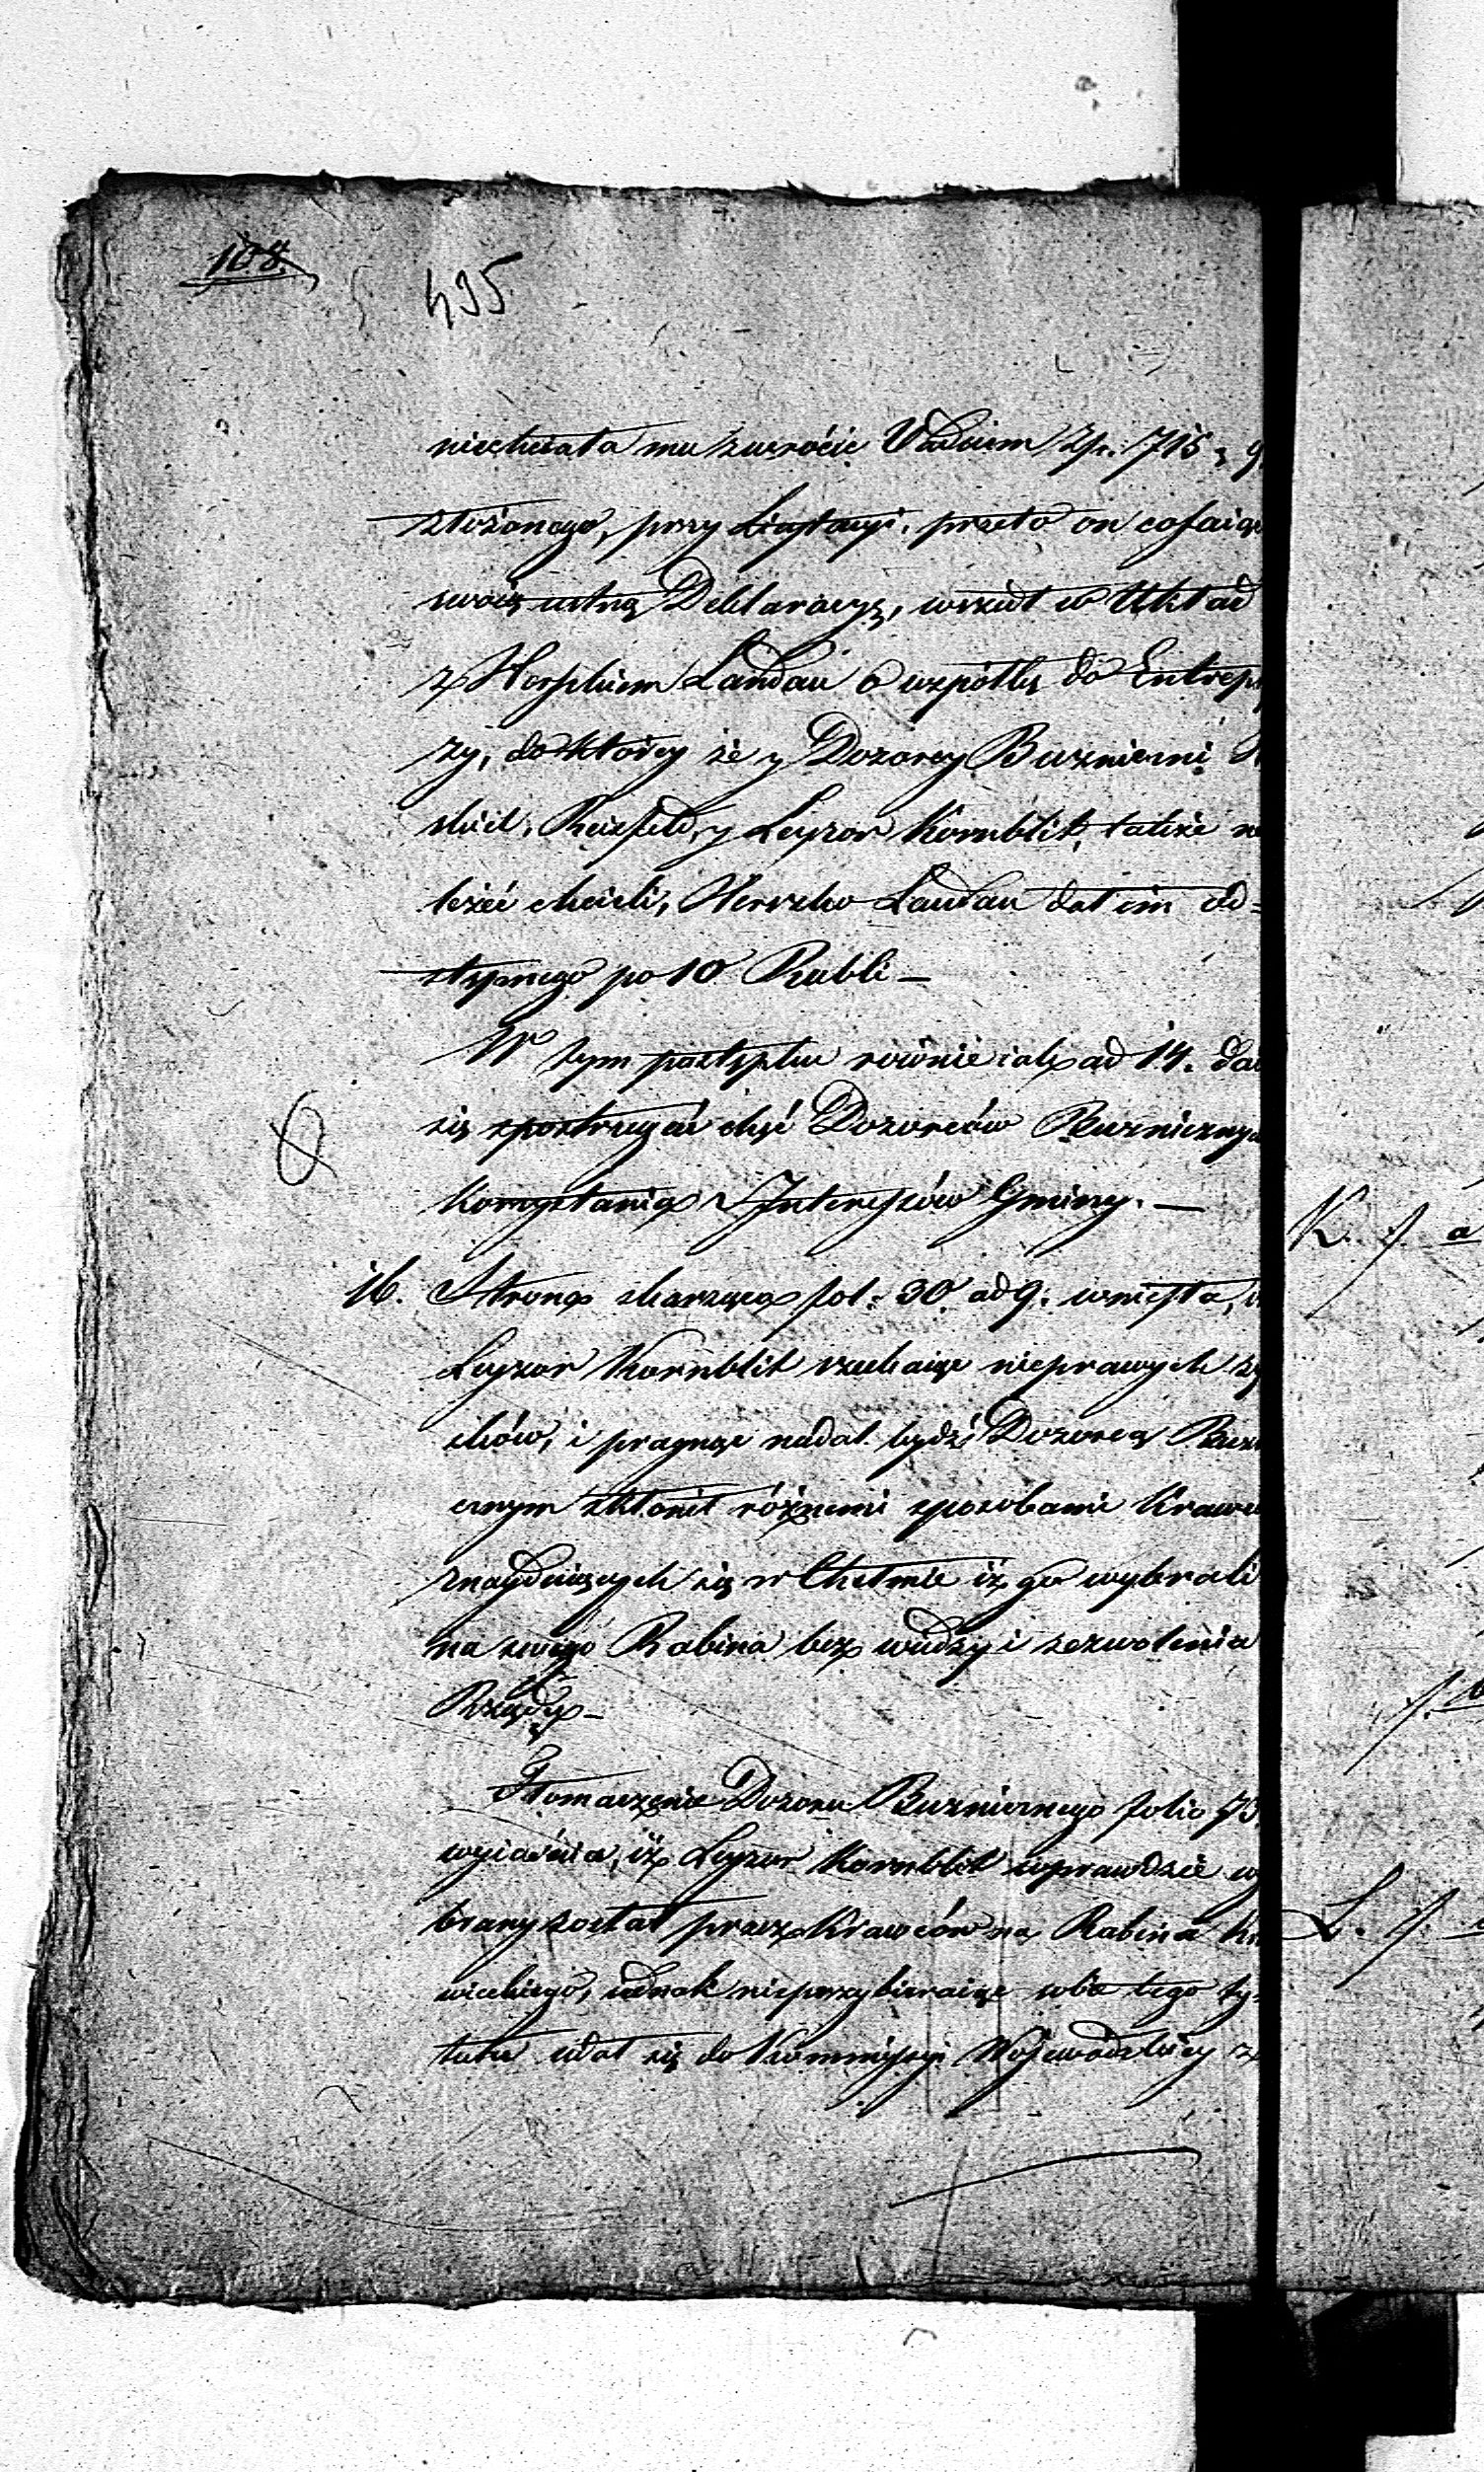 108.
495
niechciała mu zwrócić Vadium Zp. 715, g
złożonego, przy Licytacyi, przeto on cofaiąc
swoią ustną Deklaracyą, wszedł w Układ
z Herszkiem Landau o wspólkę do Entrep
zy, do ktorey że y Dozorcy Buznicmi
skiel, Reizfeld, y Leyzor Kornblit, także n
leżéć chcieli, Herszko Landau dał im od=
stępnego po 10 Rubli —
W tym postępku równie iak ad 14. da
się spostrzegać chęć Dozorców Buzniczny
korzystania z Interessów Gminy. —
16. Strona skarząca fol: 30 ad 9. wniosła,
Leyzor Kornblit szukaiąc nieprawych zy
sków, i pragnąc nadal bydź Dozorcą Buz
cznym skłonił różnemi sposobami Krawc
znayduiących się w Chełmie iż go wybrali
na swego Rabina bez wiedzy i zezwolenia
Rządu —
Tłomaczenie Dozoru Buznicznego folio 73.
wyiaśnia, iż Leyzor Kornblit wprawdzie wy
brany został przez Krawców na Rabina kra
wieckiego, iednak nieprzybieraiąc sobie tego ty=
tułu udał się do Kommissyi Wojewodzkiey z
K. f. a
L. f.